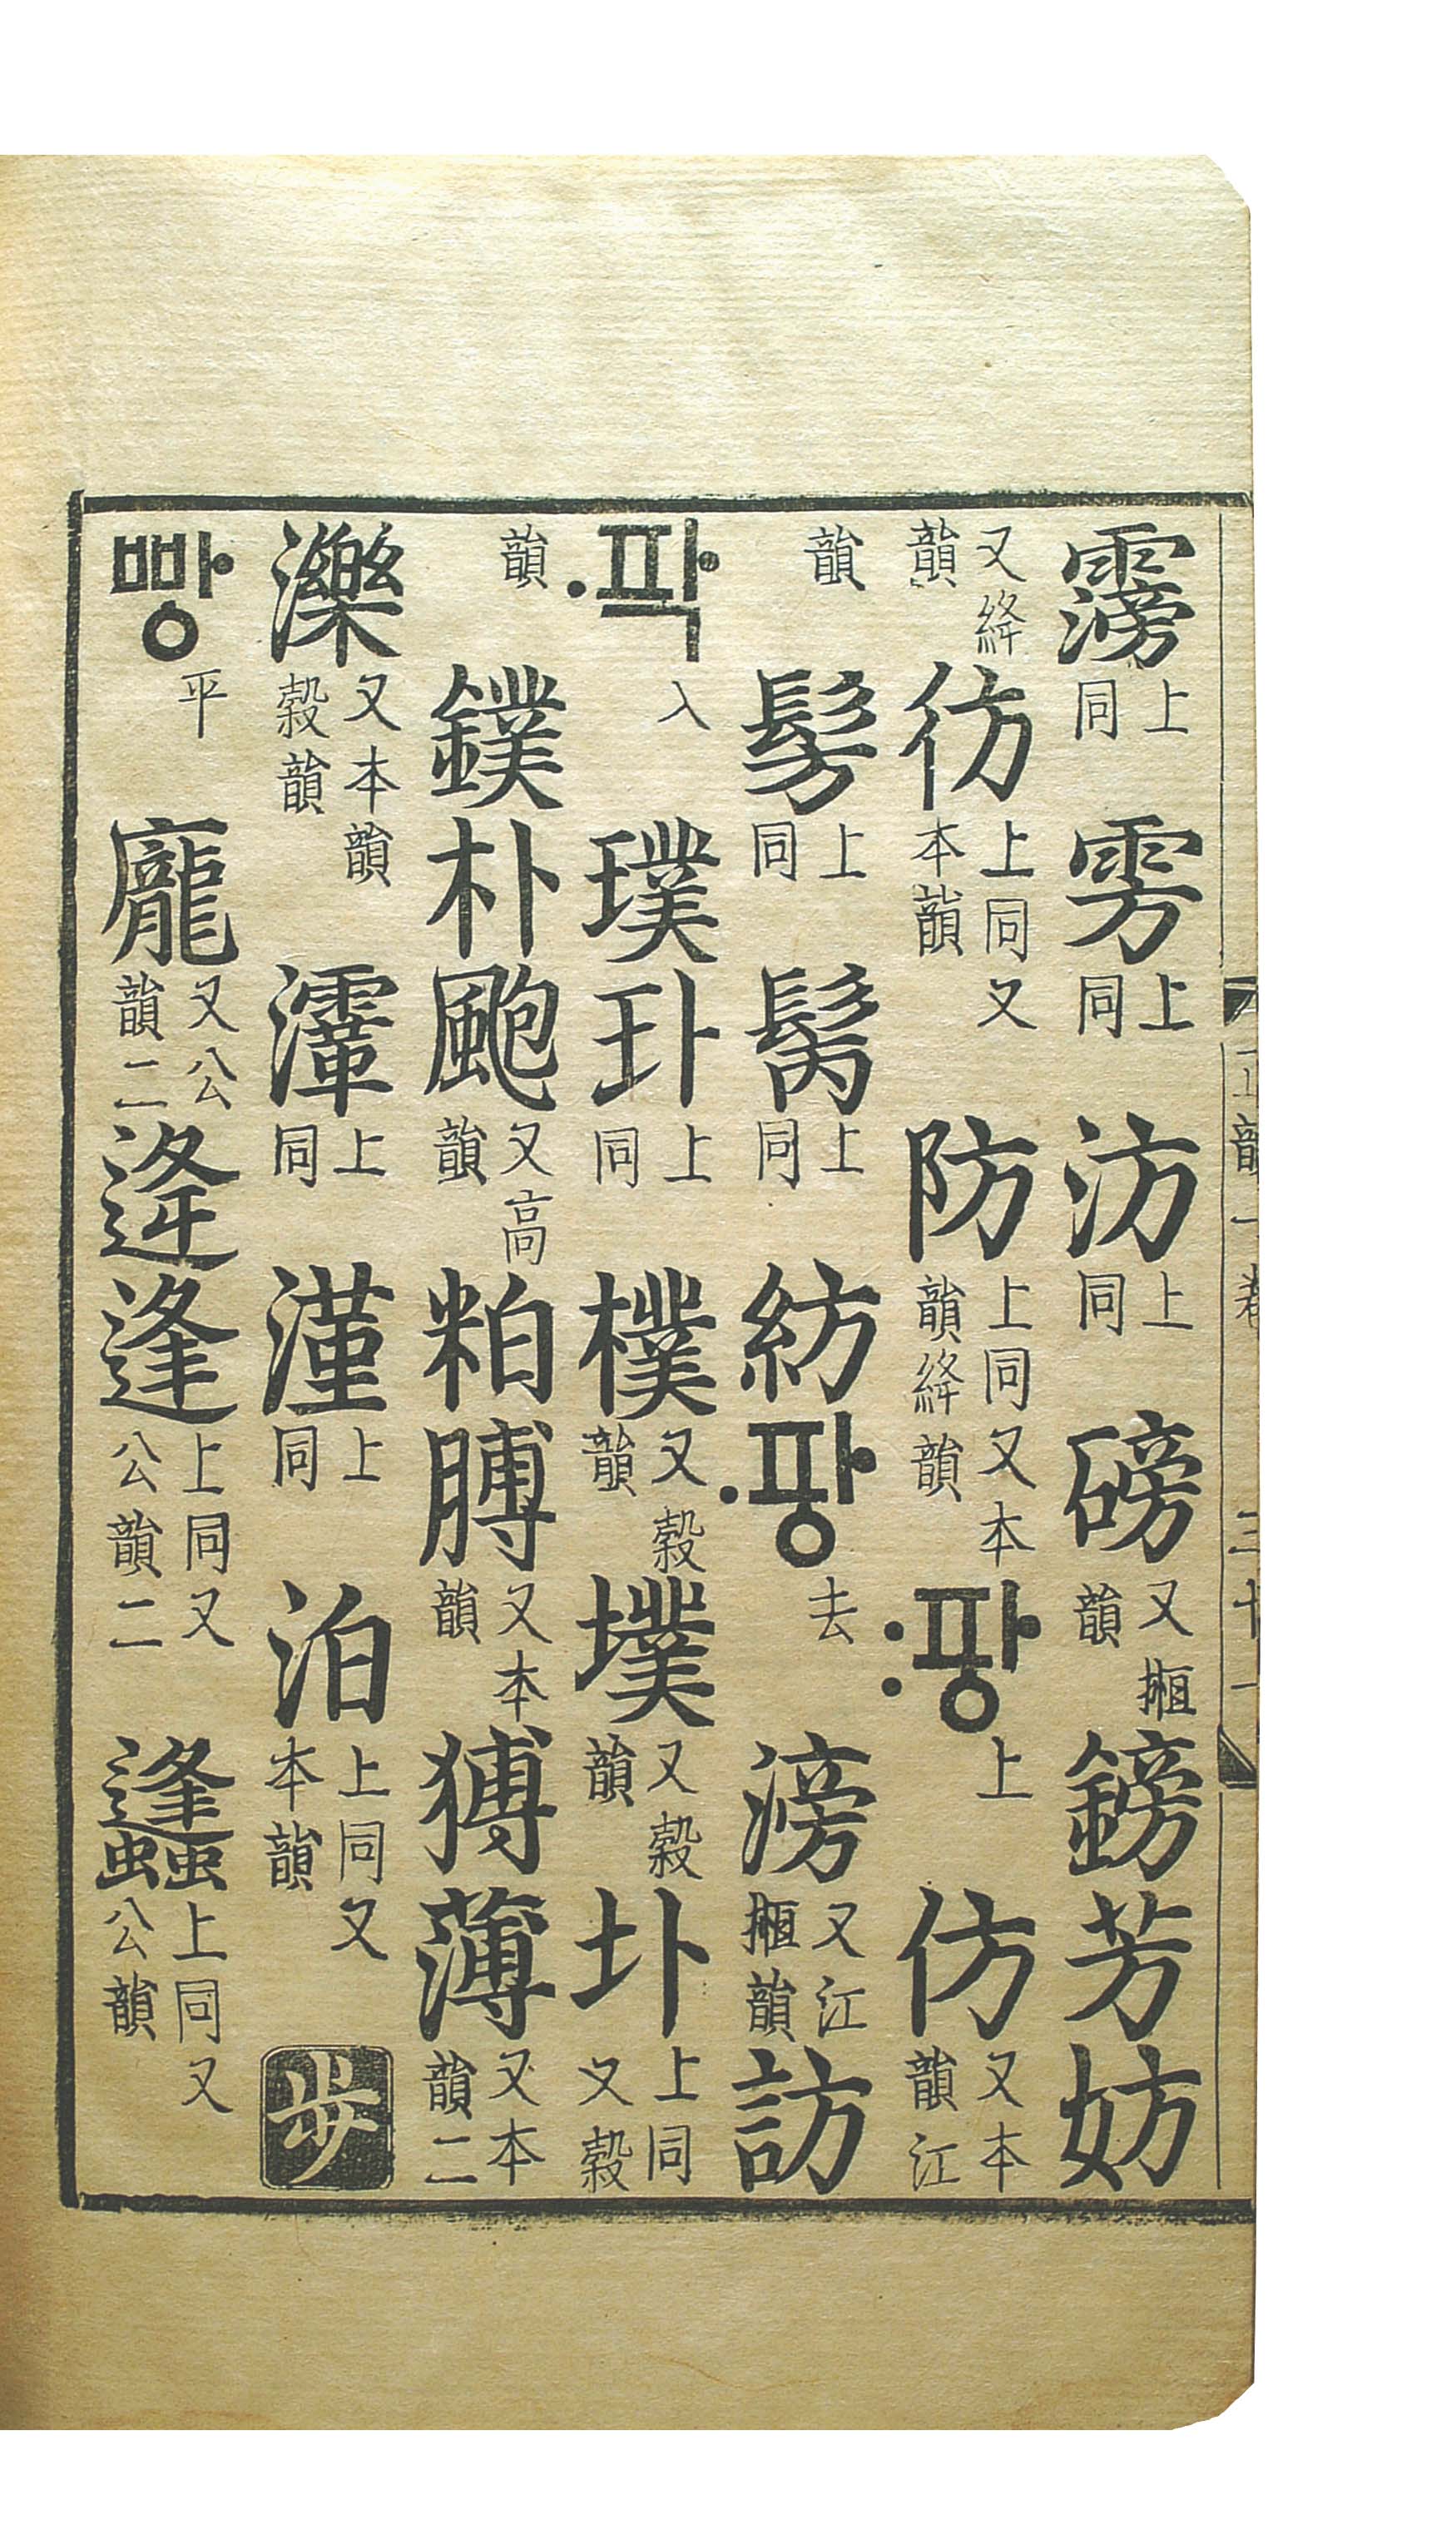 霶上同雱上同汸上同磅又揯韻鎊芳妨
又絳韻彷上同又本韻防上同又本韻絳韻:팡上仿又本韻江
韻髣上同上同紡·팡去滂又江揯韻訪
·팍入璞上同樸又穀韻墣又穀韻圤上同又穀
韻鏷朴颮又高韻粕膊又本韻猼薄又本韻二
濼又本韻穀韻上同上同泊上同又本韻步
빵平龐又公韻二逄逢上同又公韻二蠭上同又公韻